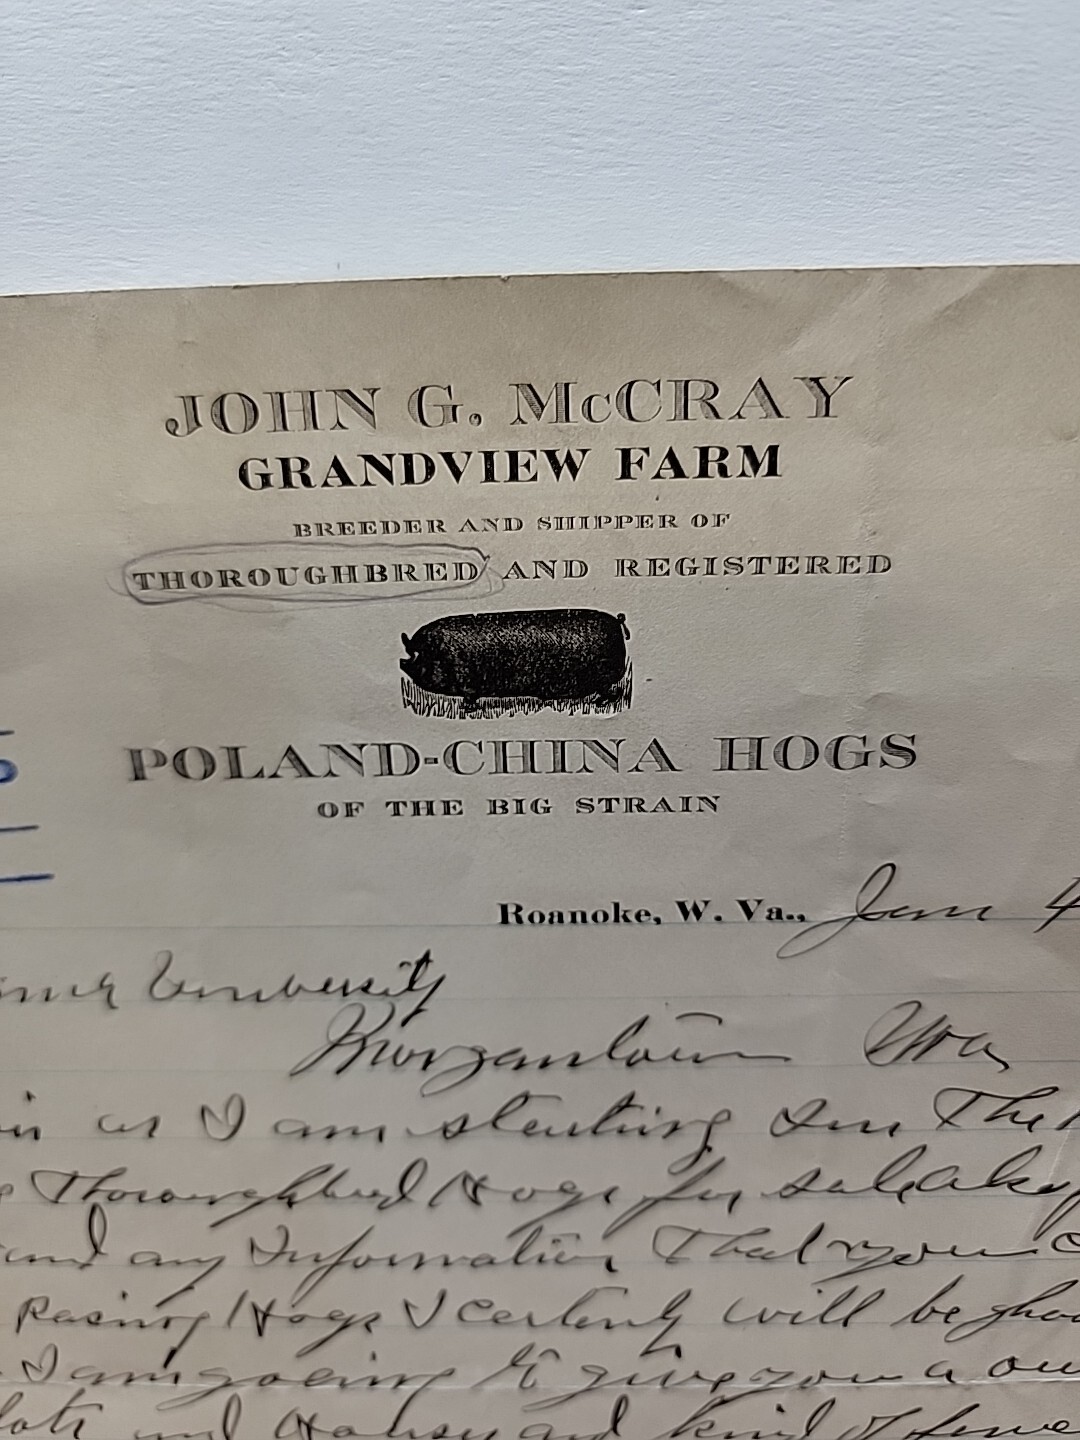 JOHN G. McCRAY
GRANDVIEW FARM
BREEDER AND SHIPPER OF
THOROUGHBRED AND REGISTERED
POLAND-CHINA HOGS
OF THE BIG STRAIN
Roanoke, W. Va., Jan 4
University
Morgantown Wva,
as I am starting In The
Thoroughbred Hogs for sale also
any Information That you
Rasing Hogs I certenly will be
I am going to give you a
and kind of